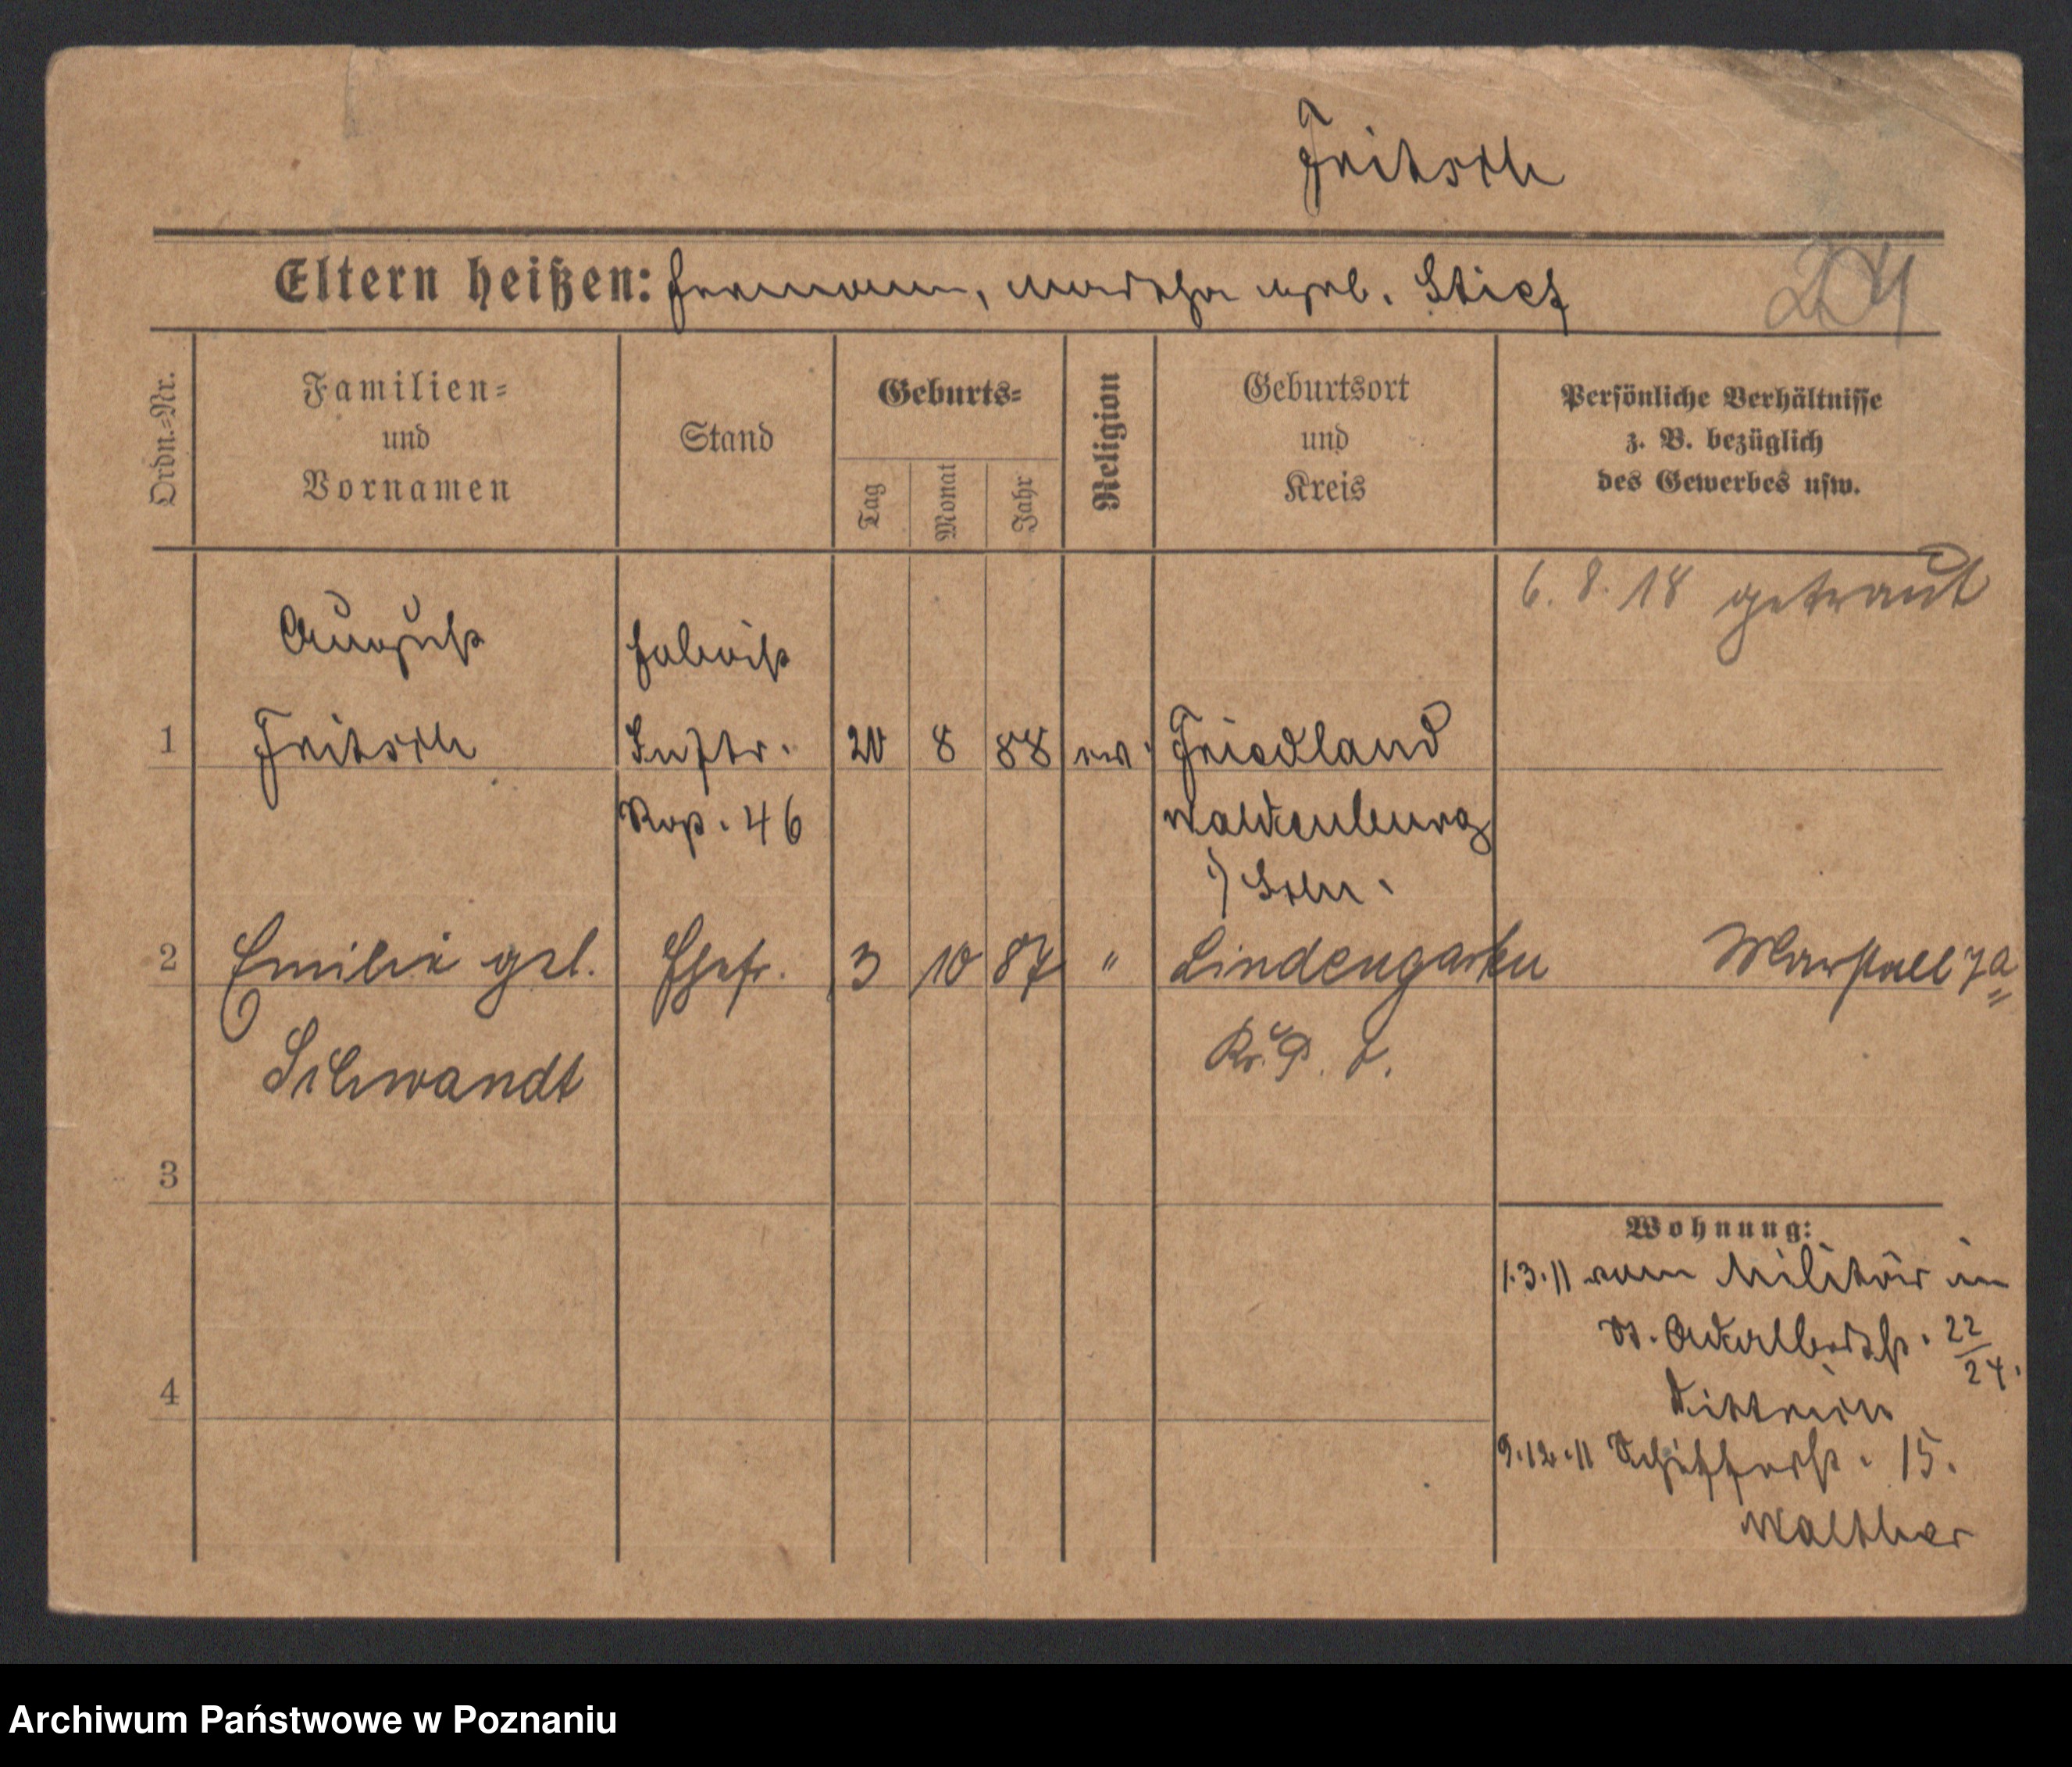 Fritsch
Eltern heißen: Hermann, Martha geb. Stief
204
Ordn.=Nr.
Familien=
und
Vornamen
Stand
Geburts=
Tag
Monat
Jahr
Religion
Geburtsort
und
Kreis
Persönliche Verhältnisse
z. B. bezüglich
des Gewerbes usw.
6. 8. 18 getraut
August
Hoboist
1 Fritsch Inftr. 20 8 88 ev. Friedland
Rgt. 46 Waldenburg
i/ Schl.
2 Emilie geb. Ehefr. 3 10 87 " Lindengarten Marstall 7a
Schwandt Kr. P. O.
3
Wohnung:
1.3.11 vom Militär in
St. Adalbertstr. 22/24.
4
Dittrich
9.12.11 Schifferstr. 15.
Walther
Archiwum Państwowe w Poznaniu